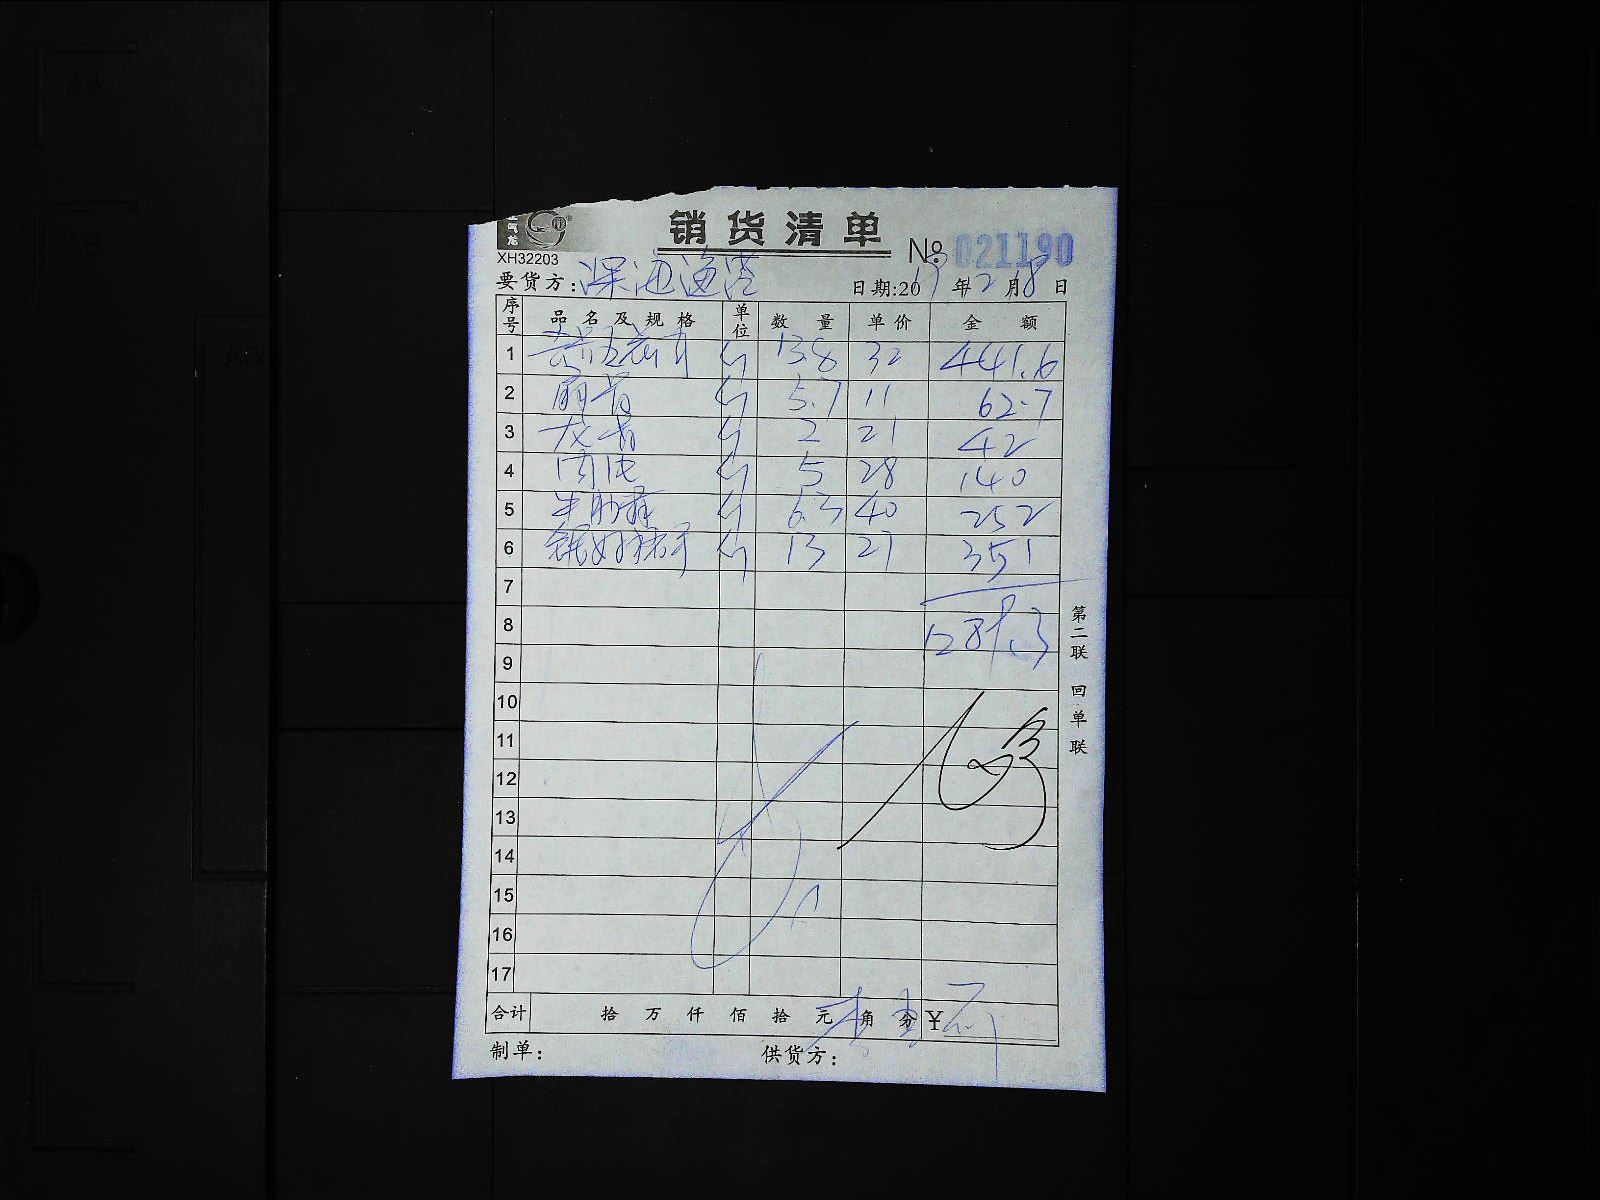 销货清单
XH32203
№ 021190
要货方: 深海渔港 日期:2019年2月18日
序号 品名及规格 单位 数量 单价 金额
1 斤 13.8 32 441.6
2 斤 5.7 11 62.7
3 龙骨 斤 2 21 42
4 斤 5 28 140
5 斤 6.3 40 252
6 斤 13 27 351
7
8 1289.3
9
10
11
12
13
14
15
16
17
合计 拾 万 仟 佰 拾 元 角 分 ¥
制单: 供货方:
第二联 回单联